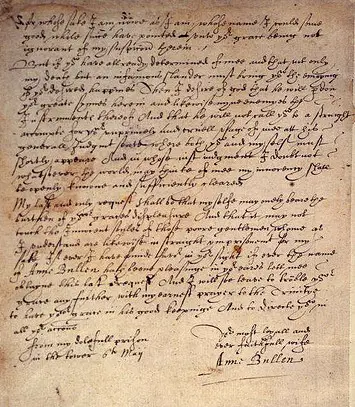 for whose sake I am now as I am, whose name I could some
good while since have pointed at, your grace being not
ignorant of my suspicion therein
But if you have allready determined of mee and that not only
my death but an infamous slander must bring you the enjoying
of your desired happines Then I desire of god that he will pardon
your great sinnes herein and likewise my enemies the
instruments thereof And that he will not call you to a straight
accompt for your unprincely and cruell usage of mee att his
generall Judgment seate where both you and my selfe must
shortly appeare And in whose just iudgment I doubt not
whatsoever the world may thinke of mee my innocency shall
be openly knowne and sufficiently cleared
My last and only request shall be that my selfe may only beare the
burthen of your graces displeasure And that it may not
touch the Innocent soules of those poore gentlemen whome as
I understand are likewise in straight imprisonment for my
sake If ever I have found favor in your sight if ever the name
of Anne Bullen have been pleasinge in your eares lett mee
obtayne this last request And I will soe leave to troble your
grace any further with my earnest prayer to the Trinitye
to have your grace in his good keepinge And to directe you in
all your actions
from my dolefull prison
in the tower 6th May
Your most loyall and
ever faithfull wife
Anne Bullen